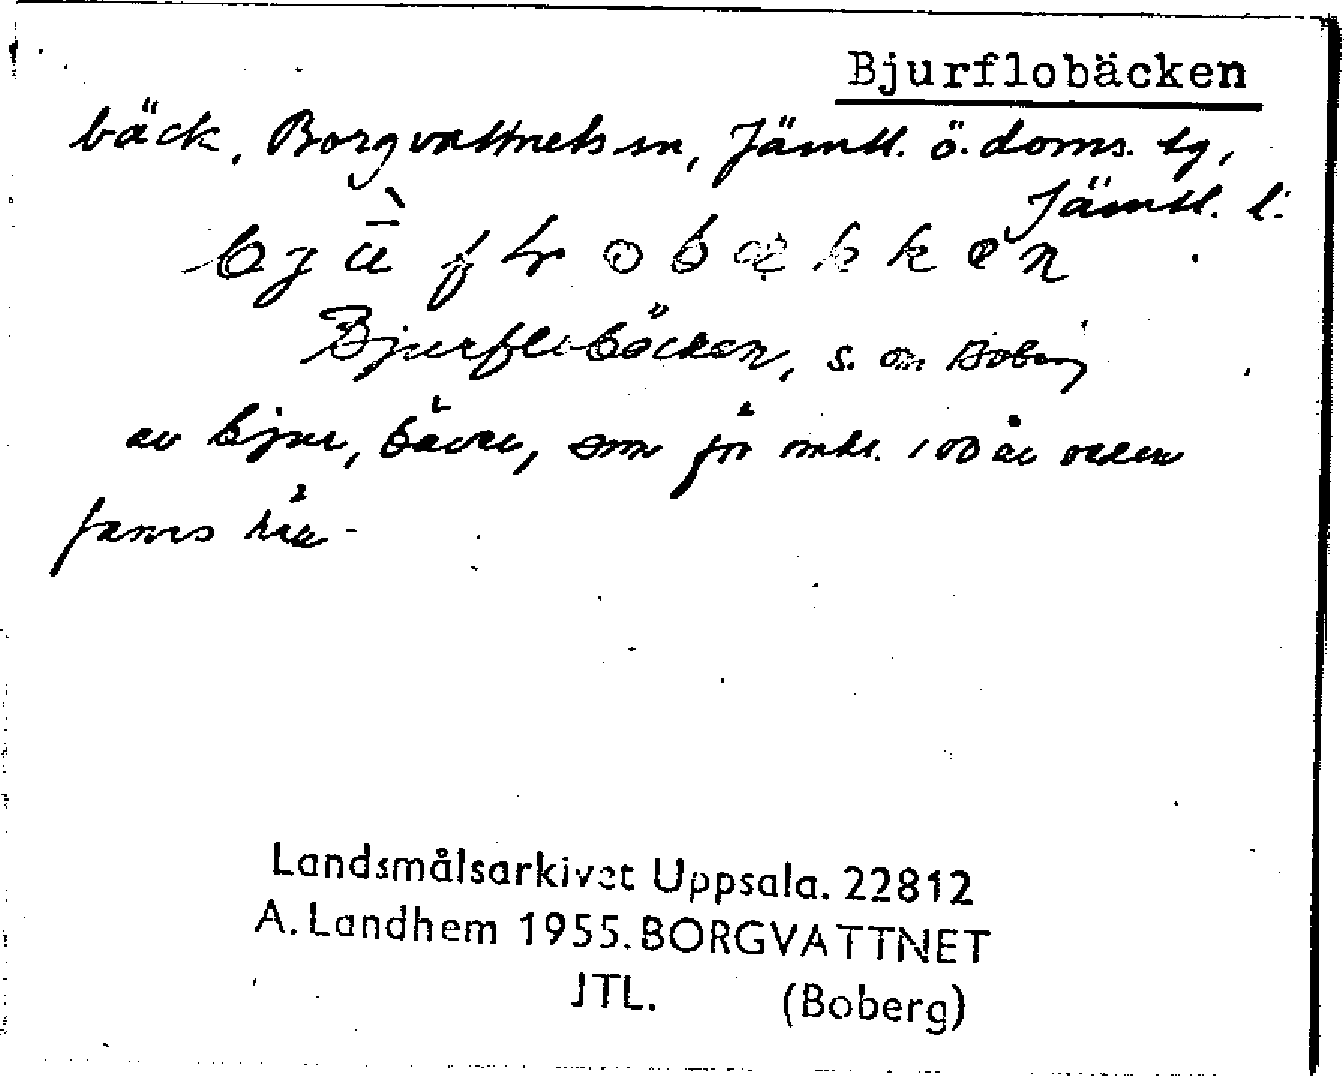 Bjurflobäcken
bäck, Borgvattnets sn, Jämtl. ö. doms. tg,
Jämtl. l.
Bjurflobäcken, s. om Boberg
av bjur, bäver, som för omkr. 100 år sedan
fanns här.
Landsmålsarkivet Uppsala. 22812
A. Landhem 1955. BORGVATTNET
JTL. (Boberg)